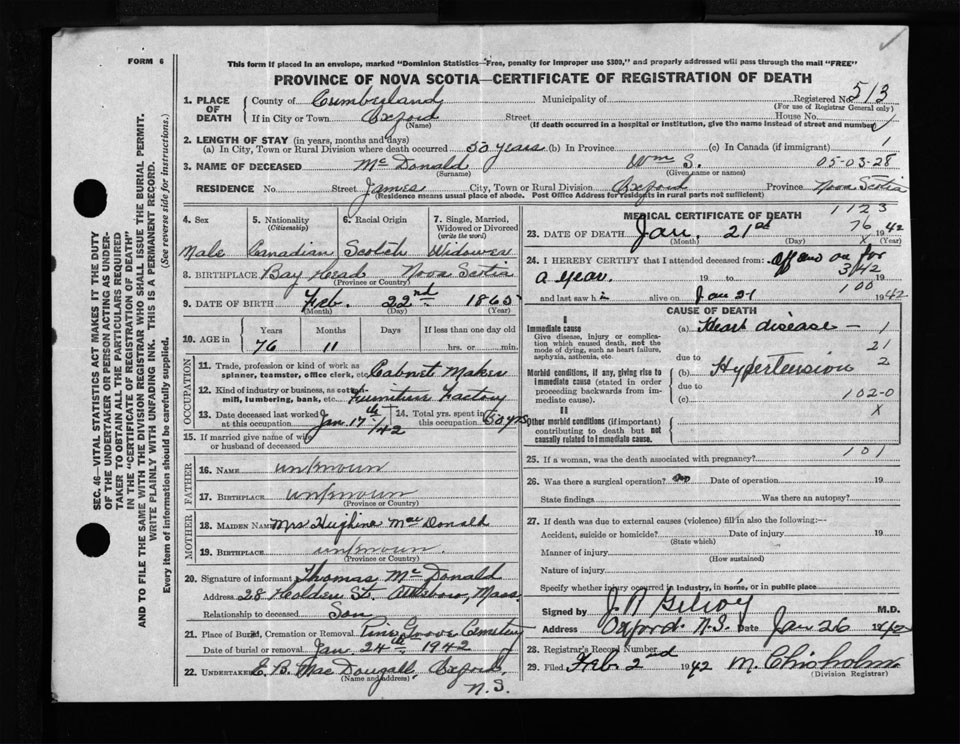 FORM 6
This form if placed in an envelope, marked "Dominion Statistics—Free, penalty for improper use $300," and properly addressed will pass through the mail "FREE"
PROVINCE OF NOVA SCOTIA—CERTIFICATE OF REGISTRATION OF DEATH
SEC. 46—VITAL STATISTICS ACT MAKES IT THE DUTY
OF THE UNDERTAKER OR PERSON ACTING AS UNDER-
TAKER TO OBTAIN ALL THE PARTICULARS REQUIRED
IN THE "CERTIFICATE OF REGISTRATION OF DEATH"
AND TO FILE THE SAME WITH THE DIVISION REGISTRAR WHO SHALL ISSUE THE BURIAL PERMIT.
WRITE PLAINLY WITH UNFADING INK. THIS IS A PERMANENT RECORD.
Every item of information should be carefully supplied. (See reverse side for instructions.)
1. PLACE OF DEATH County of Cumberland Municipality of Registered No. 513
(For use of Registrar General only)
If in City or Town Oxford Street House No.
(Name) (If death occurred in a hospital or institution, give the name instead of street and number)
2. LENGTH OF STAY (in years, months and days)
(a) In City, Town or Rural Division where death occurred 50 years (b) In Province (c) In Canada (if immigrant) 1
3. NAME OF DECEASED Mc Donald Wm S. 05-03-28
(Surname) (Given name or names)
RESIDENCE No Street James City, Town or Rural Division Oxford Province Nova Scotia
(Residence means usual place of abode. Post Office Address for residents in rural parts not sufficient)
4. Sex 5. Nationality (Citizenship) 6. Racial Origin 7. Single, Married, Widowed or Divorced (write the word)
Male Canadian Scotch Widower
8. BIRTHPLACE Bay Head Nova Scotia
(Province or Country)
9. DATE OF BIRTH Feb. 22nd 1865
(Month) (Day) (Year)
10. AGE in Years Months Days If less than one day old
76 11 hrs. or min.
OCCUPATION
11. Trade, profession or kind of work as spinner, teamster, office clerk, etc. Cabinet Maker
12. Kind of industry or business, as cotton mill, lumbering, bank, etc. Furniture Factory
13. Date deceased last worked at this occupation Jan. 17th /42 14. Total yrs. spent in this occupation 50 yrs
15. If married give name of wife or husband of deceased
FATHER
16. NAME unknown
17. BIRTHPLACE unknown
(Province or Country)
MOTHER
18. MAIDEN NAME Mrs Hughine Mac Donald
19. BIRTHPLACE unknown.
(Province or Country)
20. Signature of informant Thomas Mc Donald
Address 28 Holden St. Attleboro, Mass
Relationship to deceased Son
21. Place of Burial, Cremation or Removal Pine Grove Cemetery
Date of burial or removal Jan. 24th 1942
22. UNDERTAKER E. B. Mac Dougall, Oxford,
(Name and address) N.S.
MEDICAL CERTIFICATE OF DEATH 1123
23. DATE OF DEATH Jan. 21st 76 1942
(Month) (Day) X (Year)
24. I HEREBY CERTIFY that I attended deceased from: off and on for
a year. 19 to 3/42 19
and last saw h alive on Jan 21 100 1942
CAUSE OF DEATH
I
Immediate cause (a) Heart disease — 1
Give disease, injury or complication which caused death, not the mode of dying, such as heart failure, asphyxia, asthenia, etc. 21
due to
Morbid conditions, if any, giving rise to immediate cause (stated in order proceeding backwards from immediate cause). (b) Hypertension 2
due to
(c) 102-0
II X
Other morbid conditions (if important) contributing to death but not causally related to immediate cause.
25. If a woman, was the death associated with pregnancy? 101
26. Was there a surgical operation? no Date of operation 19
State findings Was there an autopsy?
27. If death was due to external causes (violence) fill in also the following:—
Accident, suicide or homicide? Date of injury 19
(State which)
Manner of injury
(How sustained)
Nature of injury
Specify whether injury occurred in industry, in home, or in public place
Signed by J. N Gilroy M.D.
Address Oxford. N.S. Date Jan 26 1942
28. Registrar's Record Number
29. Filed Feb 2nd 1942 M. Chisholm
(Division Registrar)